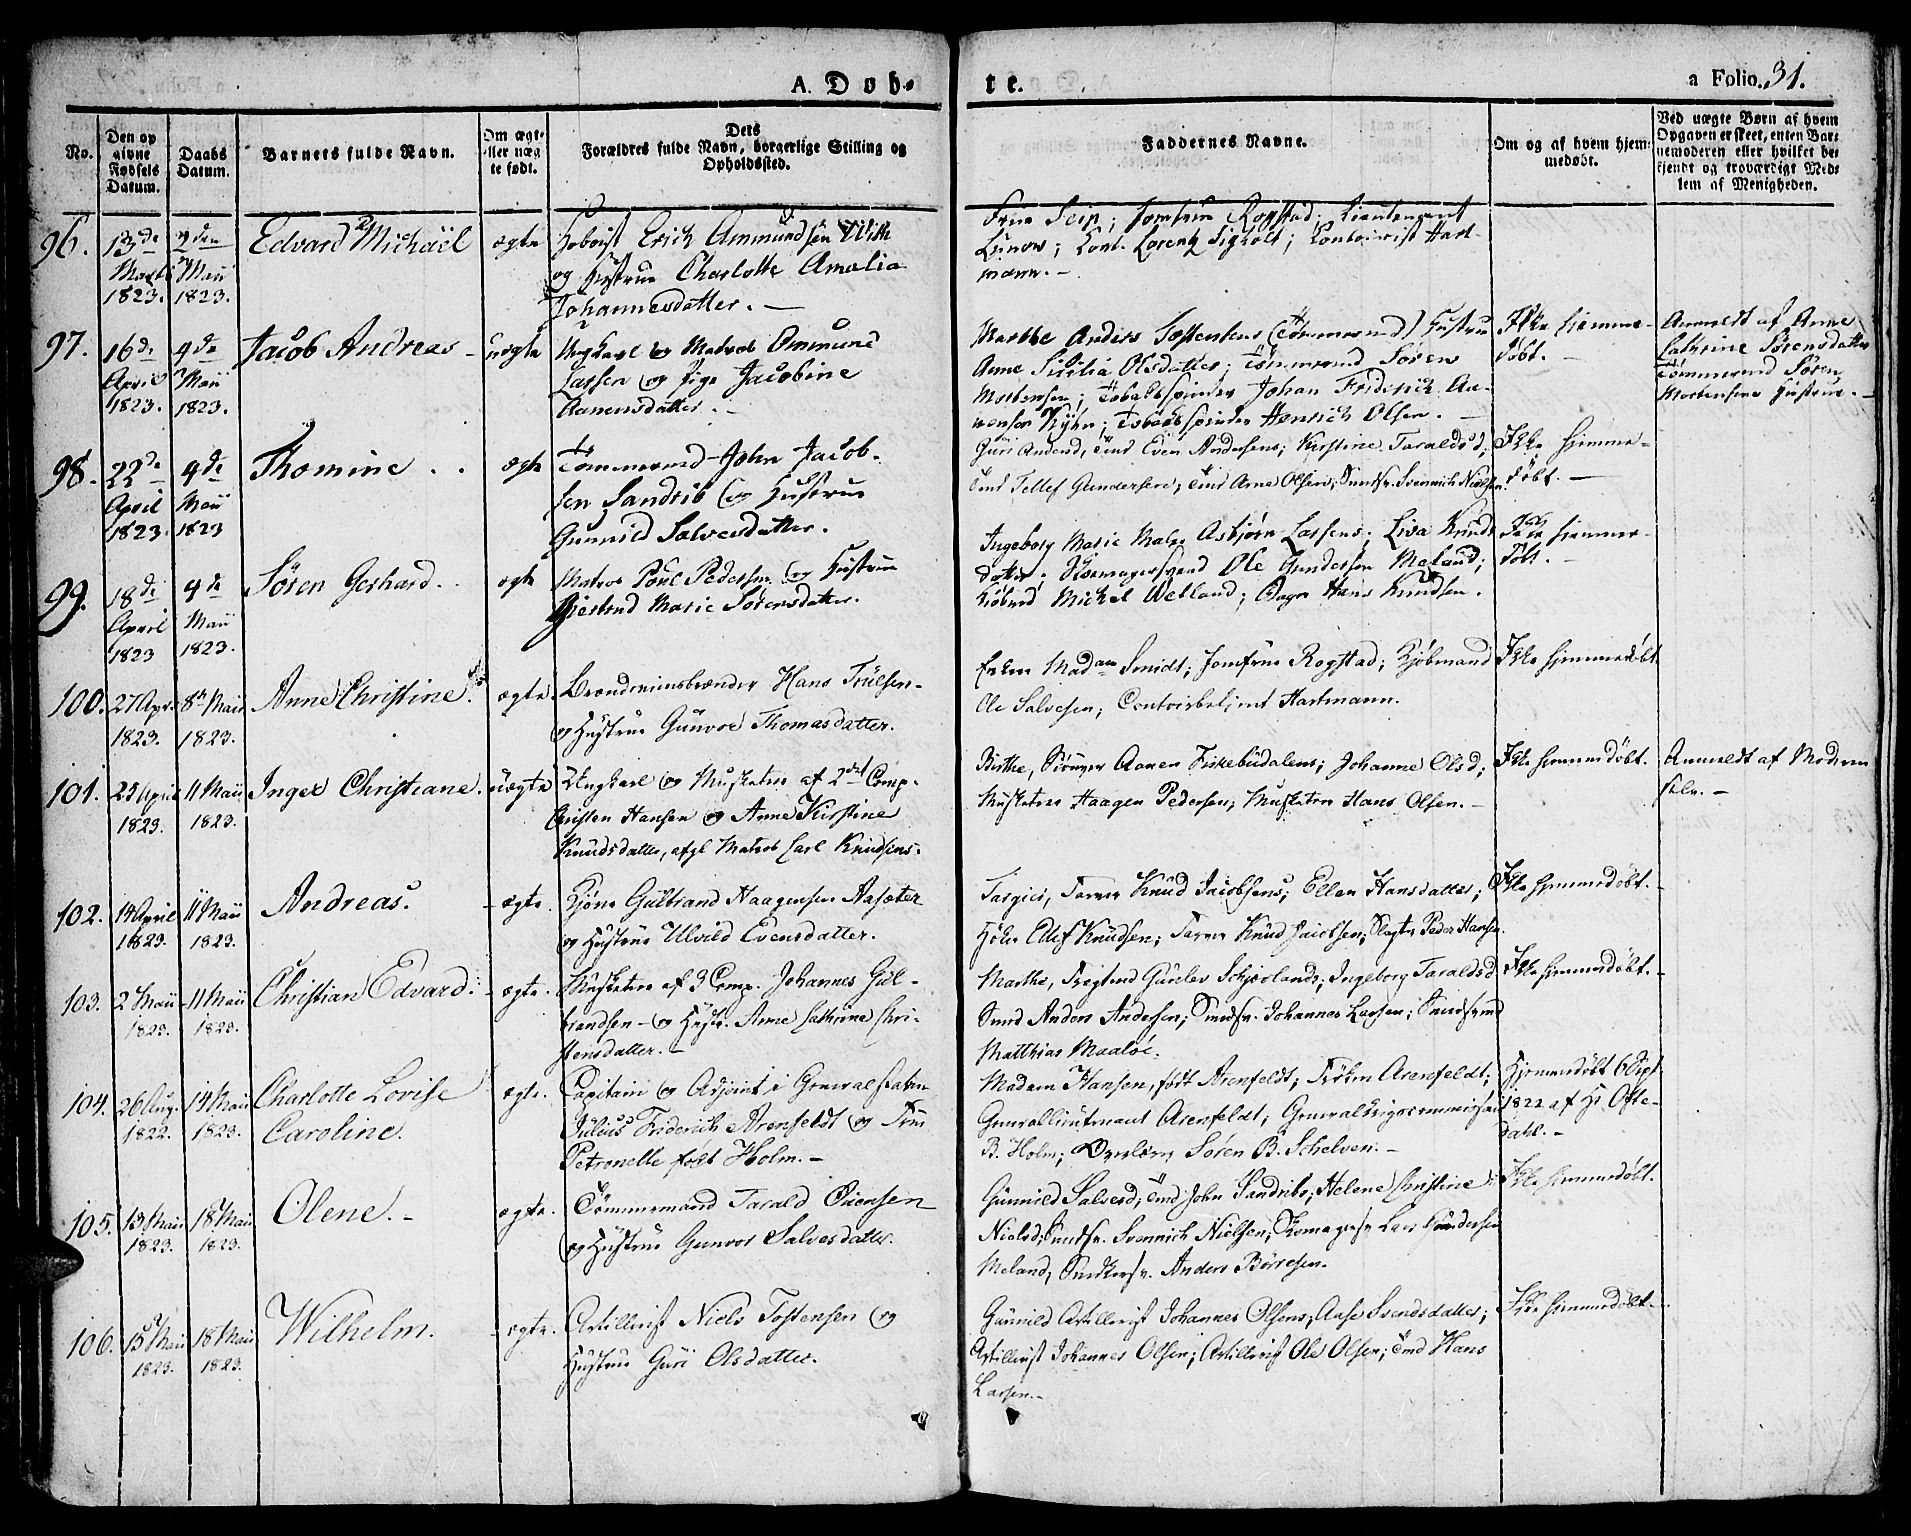 A. Døb-
te.
a Folio. 31.
No.
Den op
givne
Fødsels
Datum.
Daabs
Datum.
Barnets fulde Navn.
Om ægte
eller uæg
te født.
Dets
Forældres fulde Navn, borgerlige Stilling og
Opholdssted.
Faddernes Navne.
Om og af hvem hjem-
medøbt.
Ved uægte Børn af hvem
Opgaven er skeet, enten Bar-
nemoderen eller hvilket be-
kjendt og troværdigt Med-
lem af Menigheden.
96. 13de 2den Edvard Michäel ægte Hoboist Erich Ammundsen With
Marts Maii og Hustrue Charlotte Amalia
1823. 1823. Johannesdatter. -
Frue Seip; Jomfrue Rogstad; Lieutenant
; Cont. Lorentz Sigholt; Contoirist Hart-
mann. -
97. 16de 4de Jacob Andreas - uægte Ungkarl og Matros Ommund
April Maii Larsen og Pige Jacobine
1823. 1823. Aanensdatter. -
Marthe Anders Tostensens (Tömmermd) Hustrue
Anne Sicilia Olsdatter; Tömmermd Sören
Mortensen; Tobakspinder Johan Friderich Aa-
nensen Kyhn; Tobakspinder Henrich Olsen. -
Ikke hiemme-
döbt. -
Anmeldt af Anne
Cathrine Sörensdatter
Tömmermd Sören
Mortensens Hustrue. -
98. 22de 4de Thomine . . ægte Tömmermd John Jacob-
April Maii sen Sandrib og Hustrue
1823. 1823 Gunnild Salvesdatter.
Guri Andersd, Tmd Even Andersens; Kirstine Taraldsd;
Tmd Tellef Gundersen; Tmd Arne Olsen; Smedsv. Svennich Nielsen
Ikke hiemme-
döbt. -
99. 18de 4de Sören Gerhard. . ægte Matros Poul Pedersen og Hustrue
April Maii Giertrud Marie Sörensdatter.
1823 1823.
Ingeborg Marie Maler Asbjörn Larsens; Lisa Knuds-
datter; Skomagersvend Ole Gundersen Meland;
Kiöbmd Michel Wetland; Bager Hans Knudsen.
Ikke hiemme-
döbt. -
100. 27 Apr. 8de Maii Anne Christine. ægte. Brændeviinsbrænder Hans Truelsen
1823. 1823. og Hustrue Gunvor Thomasdatter.
Enken Madam Smidt; Jomfrue Rogstad; Kjöbmand
Ole Salvesen; Contoirbetjent Hartmann.
Ikke hjemmedöbt
101. 25 April 11 Maii Inger Christiane. uægte Ungkarl og Musketeer af 2det Comp.
1823. 1823. Christen Hansen og Anne Kirstine
Knudsdatter, afgl. Matros Carl Knudsens.
Birthe, Aanen Fiskebudalens; Johanne Olsd;
Musketeer Haagen Pedersen; Musketeer Hans Olsen. -
Ikke hjemmedöbt.
Anmeldt af Moderen
selv. -
102. 14 April 11 Maii Andreas. - ægte. Björn Gulbrand Haagensen Aasæter
1823. 1823. og Hustrue Ulvild Evensdatter.
Targier, Farver Knud Jacobsens; Ellen Hansdatter;
Edlef Knudsen; Farver Knud Jacobsen; Slagter Peder Hansen.
Ikke hjemmedöbt. -
103. 2 Maii 11 Maii Christian Edvard. - ægte. Musketeer af 3 Comp. Johannes Gul-
1823. 1823. brandsen - og Hustr. Anne Cathrine Chri-
stensdatter. -
Marthe, Gunlev Schjerlands; Ingeborg Taraldsd.
Smed Anders Andersen; Smedsv. Johannes Larsen; Smedsvend
Matthias Maalöe.
Ikke hjemmedöbt. -
104. 26 Aug. 14 Maii Charlotte Lovise ægte. Capitain og Adjoint i Generalstaben
1822. 1823. Caroline. Julius Friderich Arenfeldt og Frue
Petronelle födt Holm. -
Madam Hansen, födt Arenfeldt; Frökn Arenfeldt;
Generallieutenant Arenfeldt; Generalkrigscommissair
B. Holm; Sören B. Schelven. -
Hjemmedöbt 6 Sept.
1822 af Hr Ofte-
dahl. -
105. 13 Maii 18 Maii Olene. - ægte. Tömmermand Tarald Ouensen
1823. 1823. og Hustrue Gunvor Salvesdatter.
Gunnild Salvesd, Tmd John Sandribs; Helene Christine
Nielsd; Smedsv. Svennich Nielsen; Skomagersv. Lars Gundersen
Meland; Anders Börresen.
Ikke hjemmedöbt.
106. 15 Maii 18 Maii Wilhelm. - ægte. Artillerist Niels Tostensen og
1823. 1823. Hustrue Guri Olsdatter.
Gunnild Artillerist Johannes Olsens; Aase Svendsdatter;
Artillerist Johannes Olsen; Artillerist Ole Olsen; Tmd Hans
Larsen. -
Ikke hjemmedöbt. -